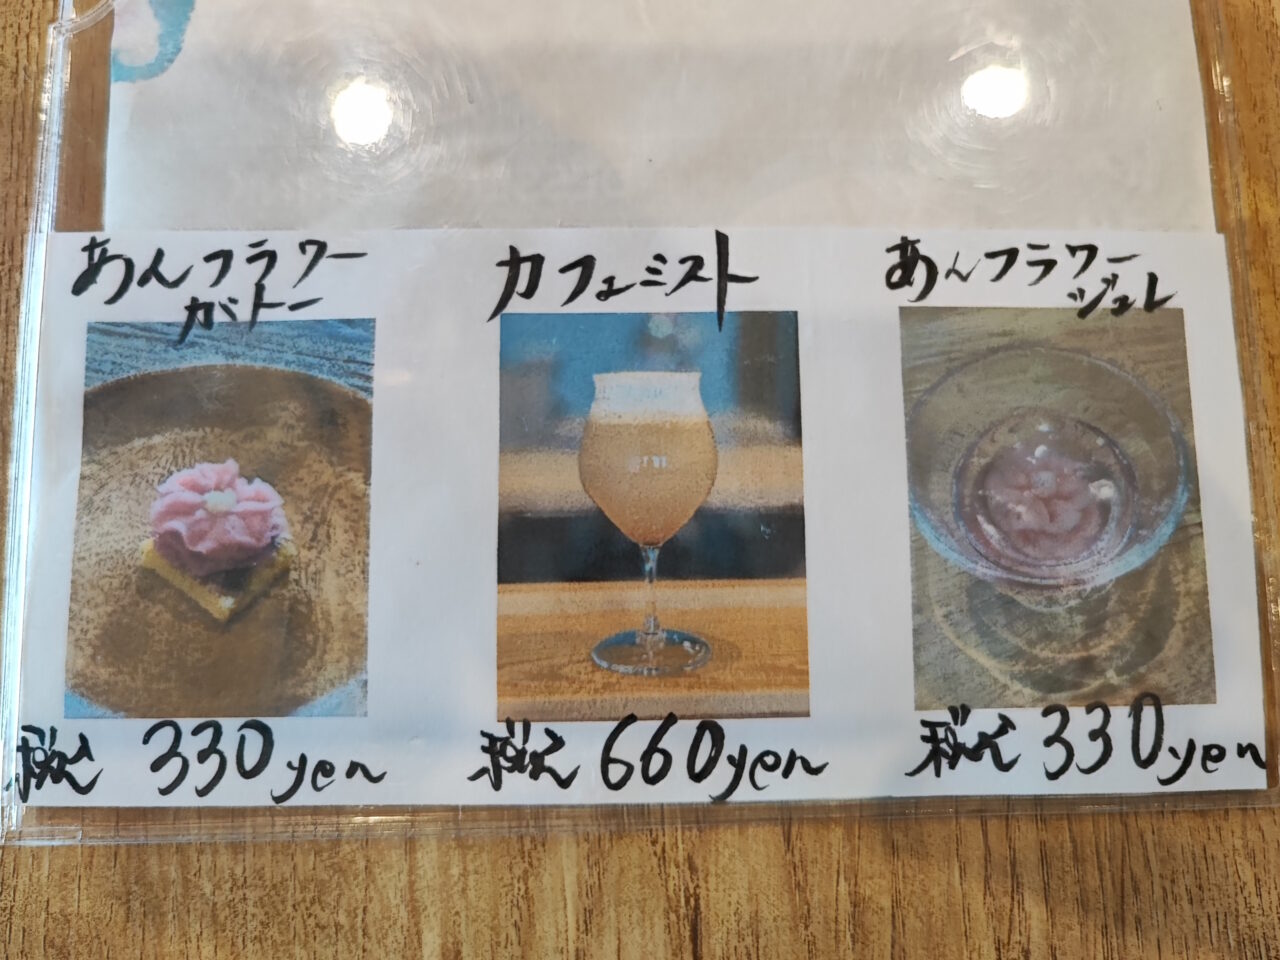 あんフラワー
ガトー
税込 330yen
カフェミスト
税込 660yen
あんフラワー
ジュレ
税込 330yen